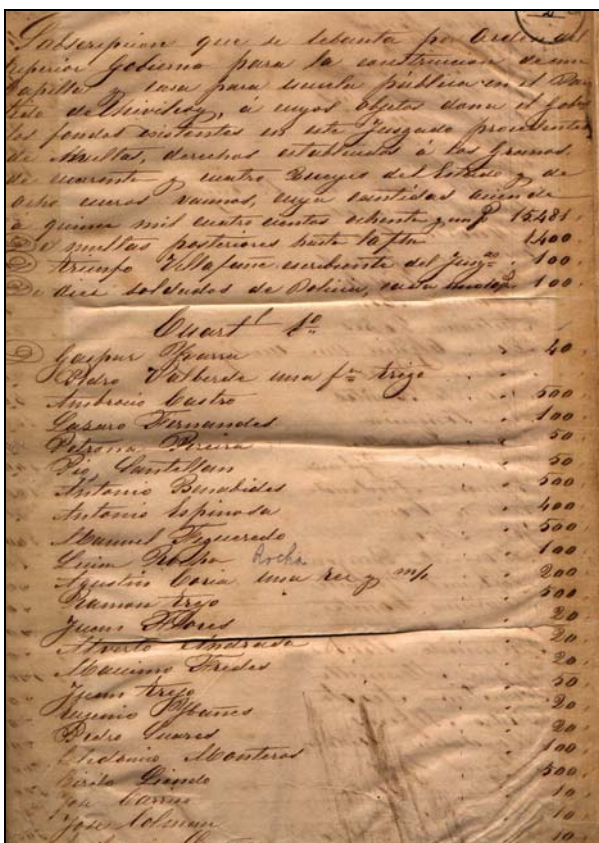 Subscripcion que se lebanta por Orden del
Superior Gobierno para la construccion de una
Capilla y casa para escuela pública en el Par
tido de Chivilcoy, á cuyos objetos dona el Gobº
los fondos existentes en este Juzgado procedentes
de Multas, derechos establecidos á los Granos
de cuarenta y cuatro Bueyes del Estado y de
ocho cueros vacunos, cuya cantidad aciende
á quince mil cuatro cientos ochenta y un p 15.481
De multas posteriores hasta la fha 1.400
Triunfo Villafane escribiente del Juzgº 100
De diez soldados de Policia, 100
Cuartl 1º
Gaspar Ybarra 40
Pedro Valberde una fª trigo
Ambrocio Castro 500
Lazaro Fernandes 100
Petrona Pereira 50
Pio Santillan 50
Antonio Benabides 500
Antonio Espinosa 400
Manuel Figueredo 500
Rocha 100
Agustin Coria una res y m/c 200
Ramon trejo 500
Juan Flores 20
Alverto Andrada 20
Macsimo Fredes 20
Juan trejo 50
Eugenio Ybañes 20
Pedro Suares 20
Seledonio Monteros 100
Sirilo Liendo 500
Jose Barrios 10
Jose Colman 10
10